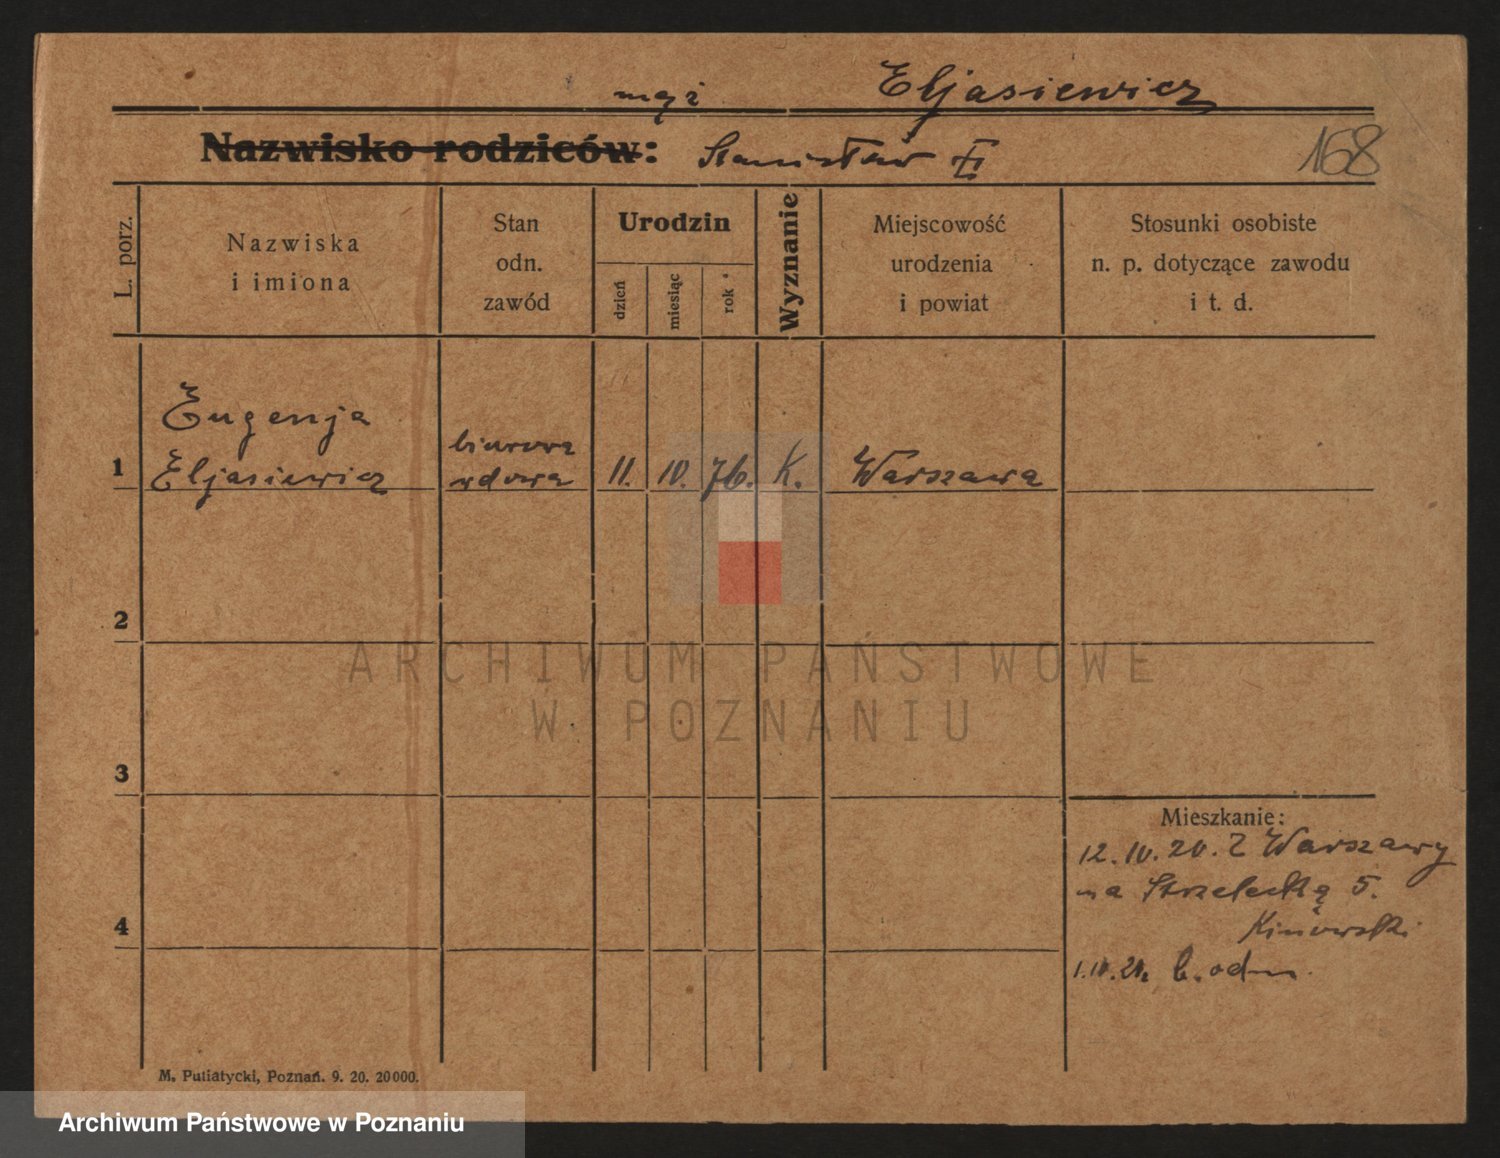 mąż Eljasiewicz
Nazwisko rodziców: Stanisław 168
L. porz.
Nazwiska
i imiona
Stan
odn.
zawód
Urodzin
dzień
miesiąc
rok
Wyznanie
Miejscowość
urodzenia
i powiat
Stosunki osobiste
n. p. dotyczące zawodu
i t. d.
Eugenja biurowa
1 Eljasiewicz wdowa 11. 10. 76. K. Warszawa
2
ARCHIWUM PAŃSTWOWE
W POZNANIU
3
Mieszkanie:
12.10.20. Z Warszawy
na Strzelecką 5.
4
b. odm.
M. Putiatycki, Poznań. 9. 20. 20000.
Archiwum Państwowe w Poznaniu